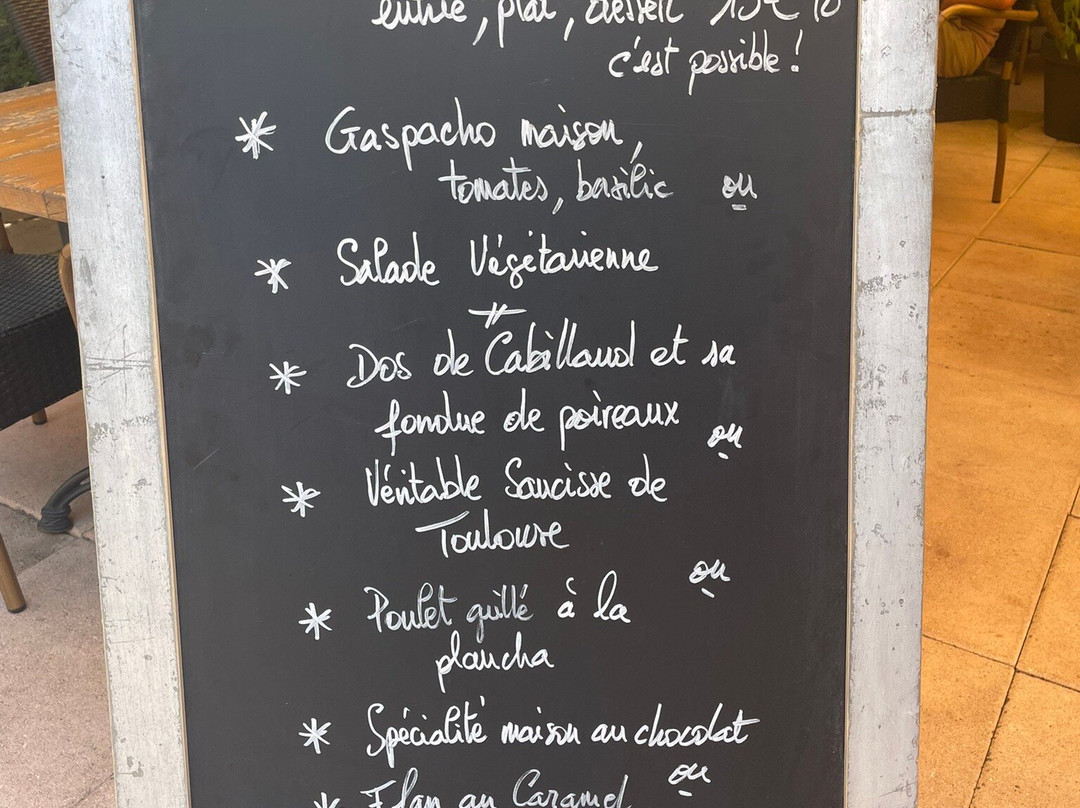 entrée, plat, dessert
c'est possible !
* Gaspacho maison,
tomates, basilic ou
* Salade Végétarienne
* Dos de Cabillaud et sa
fondue de poireaux
ou
* Véritable Saucisse de
Toulouse
ou
* Poulet grillé à la
plancha
* Spécialité maison au chocolat
ou
* Flan au Caramel